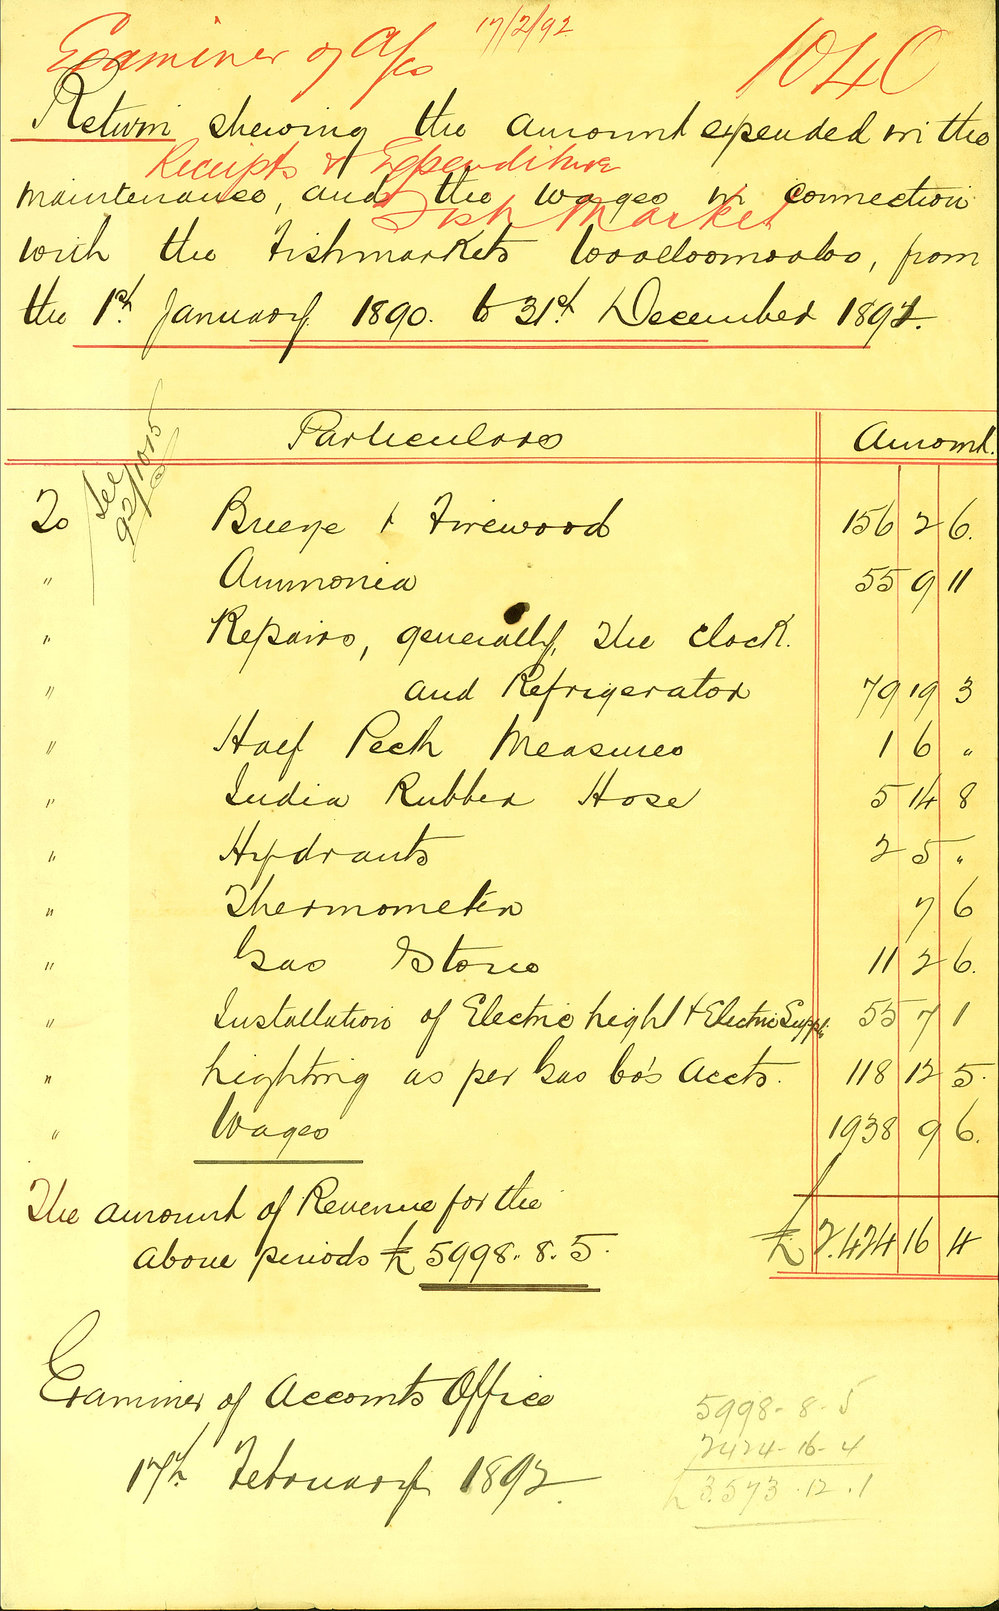 Examiner of A/cs 17/2/92 1040
Return shewing the amount expended in the
Receipts & Expenditure
maintenance, and the wages in connection
Fish Market
with the Fishmarkets Woolloomooloo, from
the 1st January 1890. to 31st December 1891.
Particulars Amount.
See
92/1015
To Breeze & Firewood 156 2 6.
" Ammonia 55 9 11
" Repairs, generally, the clock.
" and Refrigerator 79 19 3
" Half Peck Measures 1 6 "
" India Rubber Hose 5 14 8
" Hydrants 2 5 "
" Thermometer 7 6
" Gas Stove 11 2 6.
" Installation of Electric Light & Electric Suppl. 55 7 1
" Lighting as per Gas Co's Accts. 118 12 5.
" Wages 1938 9 6.
The amount of Revenue for the
above periods £ 5998. 8. 5. £ 2.424 16 4
Examiner of Accounts Office
17th February 1892.
5998. 8. 5
2424. 16. 4
£ 3.573. 12. 1